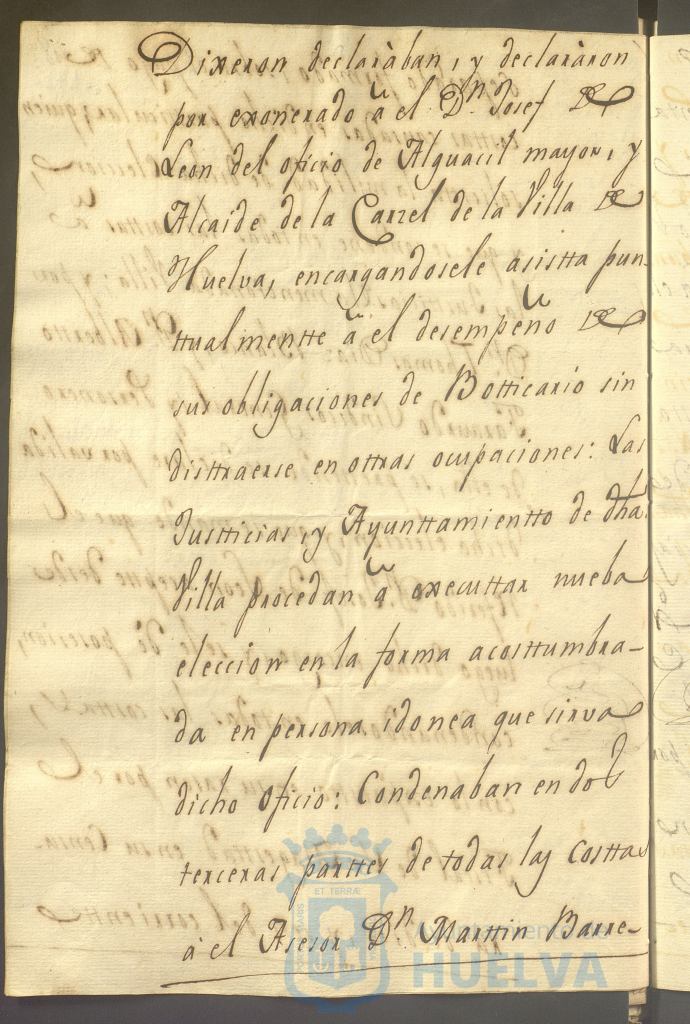 Dixeron declaràban, y declaràron
por exonerado à el Dn. Josef De
Leon del oficio de Alguacil mayor, y
Alcaide de la Carzel de la Villa De
Huelva, encargandosele asistta pun-
ttualmentte à el desempeño De
sus obligaciones de Botticario sin
disttraerse en ottras ocupaciones: Las
Justticias, y Ayunttamientto de dha
Villa procedan à executtar nueba
eleccion en la forma acosttumbra-
da en persona idonea que sirva
dicho oficio: Condenaban en dos
terceras parttes de todas las Costtas
à el Asesor Dn. Marttin Barre-
ET TERRÆ
HUELVA